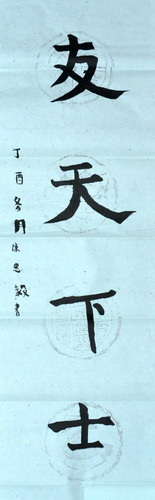 友天下士
丁酉冬月朱忠毅書